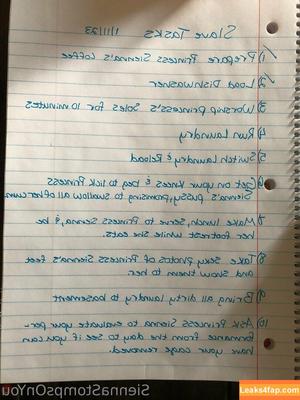 Slave Tasks
1/11/23
1) Prepare Princess Sienna's Coffee
2) Load Dishwasher
3) Worship Princess's Soles for 10 minutes
4) Run Laundry
5) Switch Laundry & Reload
6) Get on your knees & beg to lick Princess
Sienna's pussy, promising to swallow all other cum
7) Make lunch, serve Princess Sienna, & be
her footrest while she eats.
8) Take sexy photos of Princess Sienna's feet
and show them to her
9) Bring all dirty laundry to basement
10) Ask Princess Sienna to evaluate your per-
formance from the day to see if you can
have your cage removed.
SiennaStompsOnYou
Leaks4fap.com